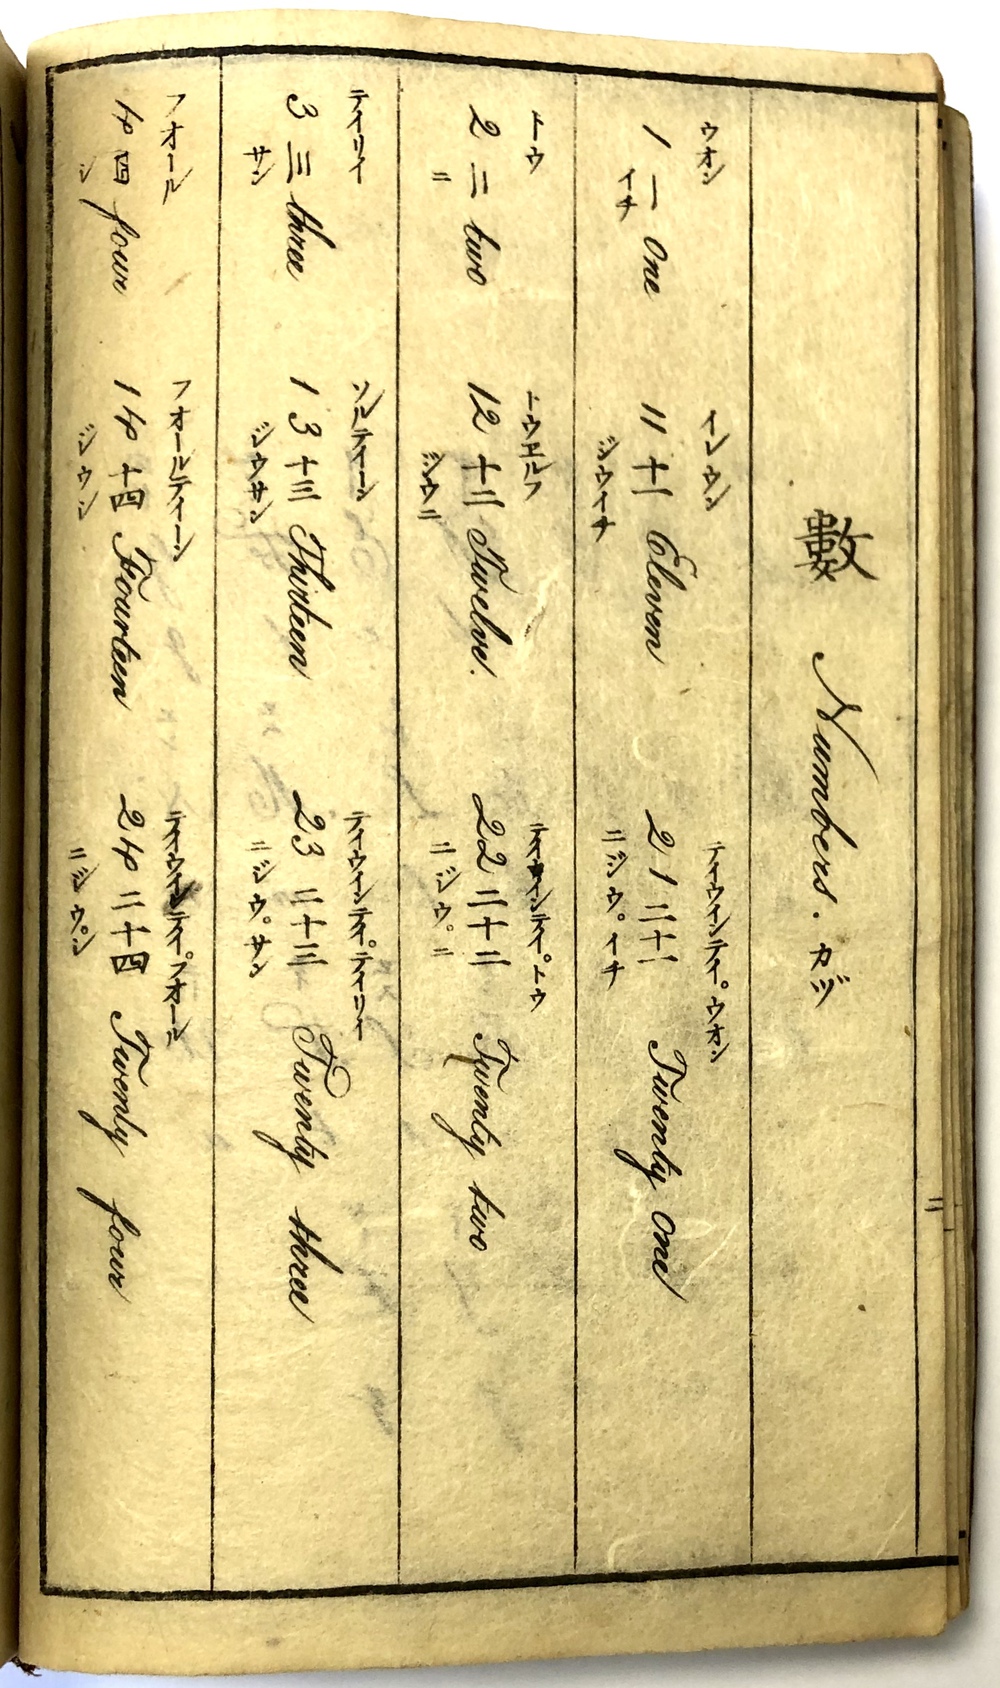 數 Numbers. カヅ
ウオン イレウン テイウインテイ。ウオン
1 一 one 11 十一 Eleven 21 二十一 Twenty one
イチ ジウイチ ニジウ。イチ
トウ トウエルフ テイウインテイ。トウ
2 二 two 12 十二 Twelve. 22 二十二 Twenty two
ニ ジウニ ニジウ。ニ
テイリイ ソルテイーン テイウインテイ。テイリイ
3 三 three 13 十三 Thirteen 23 二十三 Twenty three
サン ジウサン ニジウ。サン
フオール フオールテイーン テイウインテイ。フオール
4 四 four 14 十四 Fourteen 24 二十四 Twenty four
シ ジウシ ニジウ。シ
二